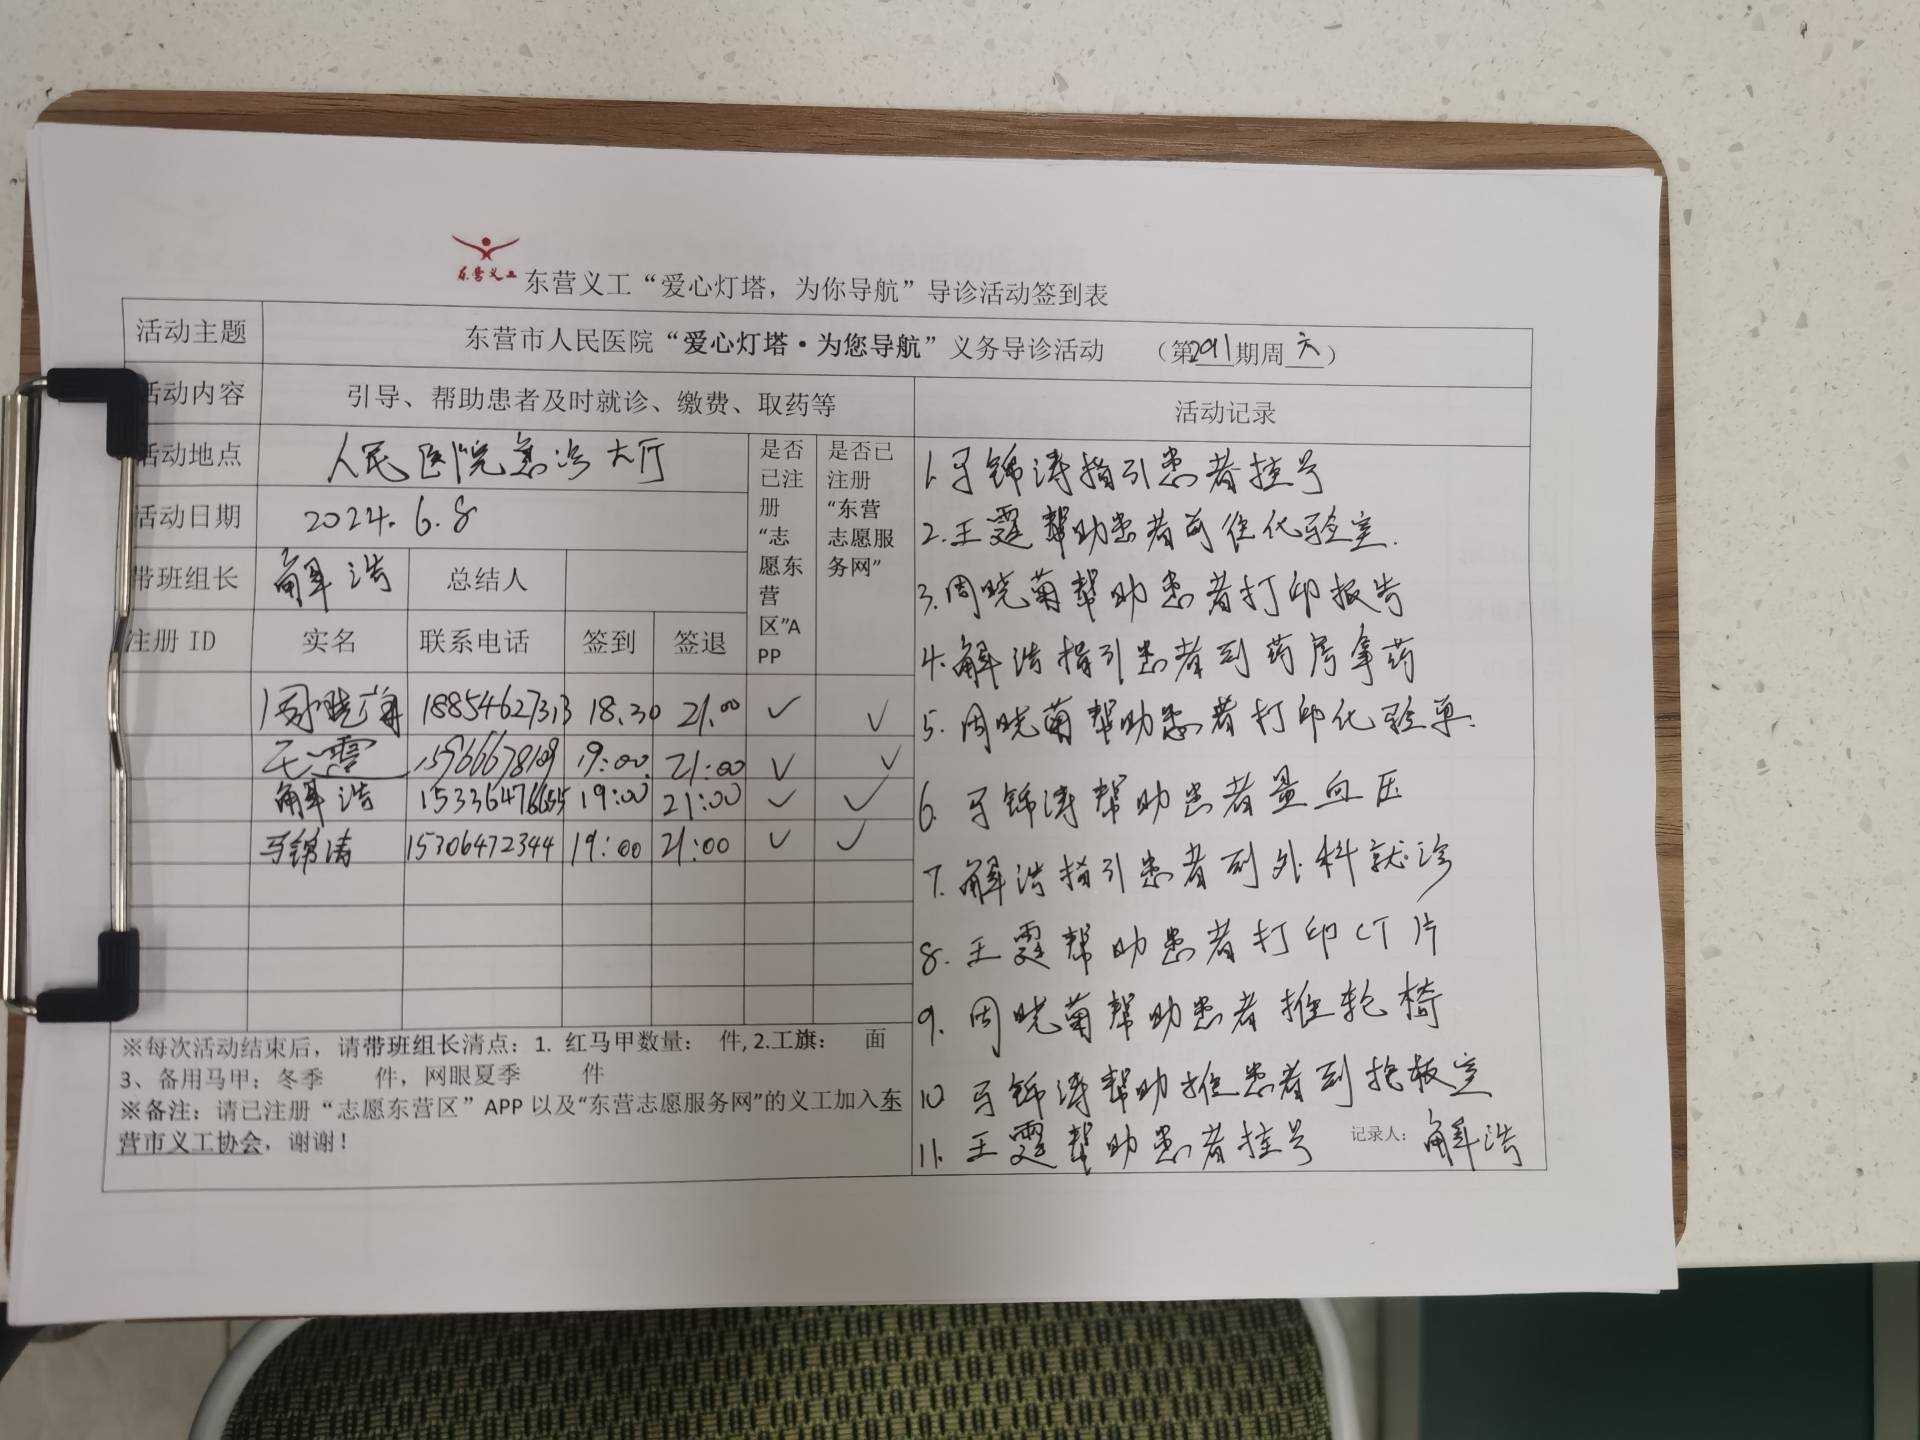 东营义工
东营义工“爱心灯塔，为你导航”导诊活动签到表
活动主题 东营市人民医院“爱心灯塔·为您导航”义务导诊活动 （第2091期周六）
活动内容 引导、帮助患者及时就诊、缴费、取药等
活动地点 人民医院急诊大厅
活动日期 2024.6.8
带班组长 解浩 总结人
注册 ID 实名 联系电话 签到 签退
是否
已注
册
“志
愿东
营
区”A
PP
是否已
注册
“东营
志愿服
务网”
周晓菊 18854627313 18.30 21.00 ✓ ✓
王霆 15966678109 19:00 21:00 ✓ ✓
解浩 19:00 21:00 ✓ ✓
马锦涛 15306472344 19:00 21:00 ✓ ✓
※每次活动结束后，请带班组长清点：1. 红马甲数量： 件, 2.工旗： 面
3、备用马甲：冬季 件，网眼夏季 件
※备注：请已注册“志愿东营区”APP 以及“东营志愿服务网”的义工加入东
营市义工协会，谢谢！
活动记录
1.马锦涛指引患者挂号
2.王霆帮助患者前往化验室.
3.周晓菊帮助患者打印报告
4.解浩指引患者到药房拿药
5.周晓菊帮助患者打印化验单.
6.马锦涛帮助患者量血压
7.解浩指引患者到外科就诊
8.王霆帮助患者打印CT片
9.周晓菊帮助患者推轮椅
10 马锦涛帮助推患者到抢救室
11.王霆帮助患者挂号
记录人： 解浩